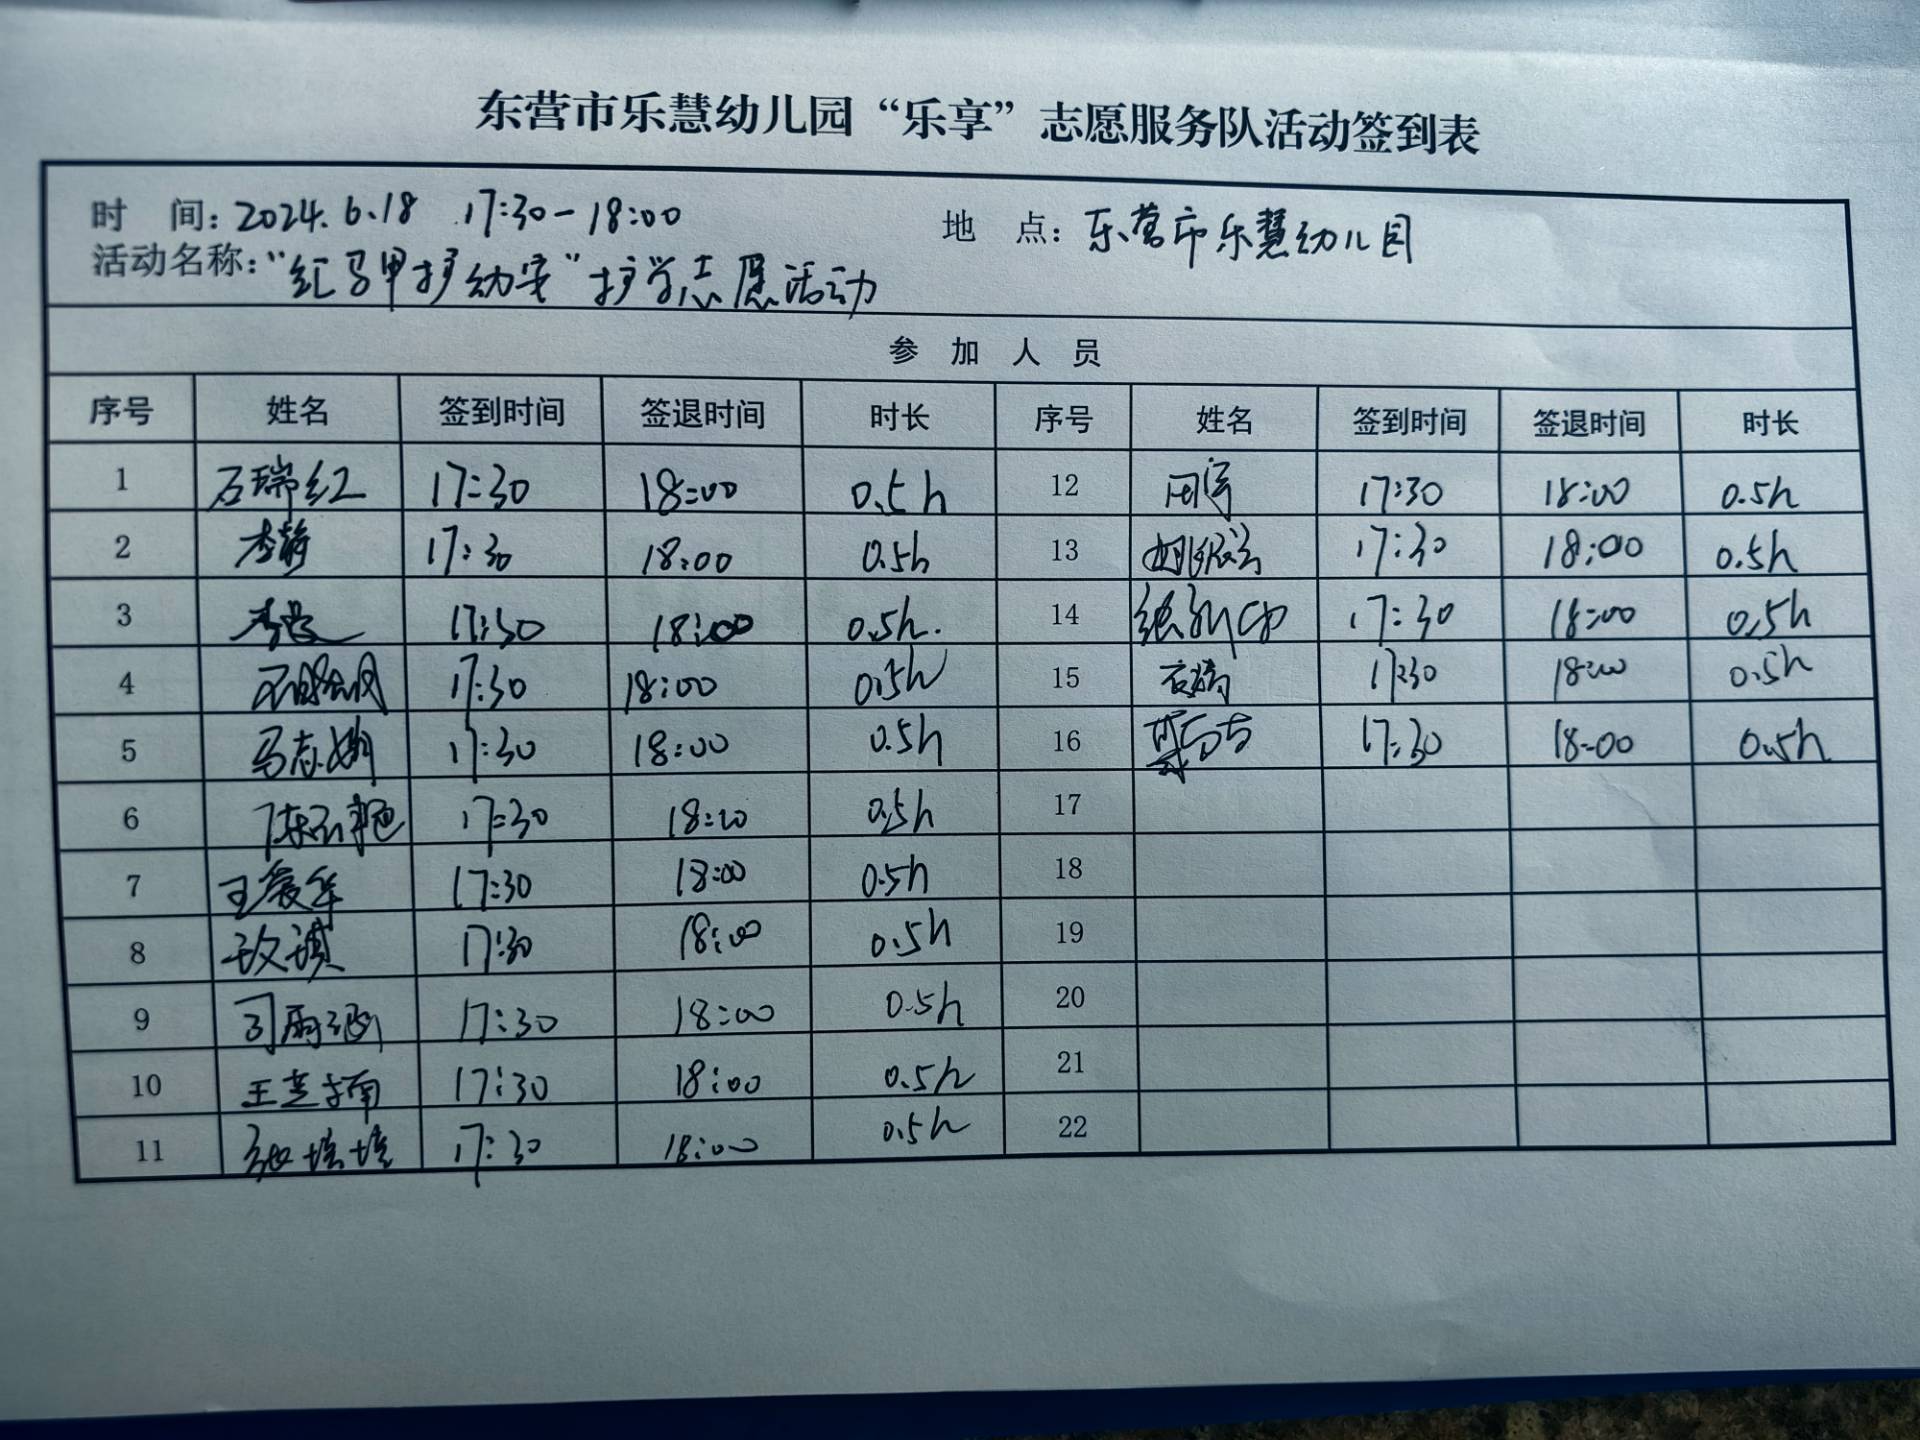 东营市乐慧幼儿园“乐享”志愿服务队活动签到表
时 间：2024.6.18 17:30-18:00 地 点：东营市乐慧幼儿园
活动名称：“红马甲护幼安”护学志愿活动
参 加 人 员
序号 姓名 签到时间 签退时间 时长 序号 姓名 签到时间 签退时间 时长
1 石瑞红 17:30 18:00 0.5h 12 17:30 18:00 0.5h
2 李静 17:30 18:00 0.5h 13 17:30 18:00 0.5h
3 17:30 18:00 0.5h. 14 17:30 18:00 0.5h
4 17:30 18:00 0.5h 15 17:30 18:00 0.5h
5 马志娜 17:30 18:00 0.5h 16 17:30 18:00 0.5h
6 17:30 0.5h 17
7 王爱华 17:30 18:00 0.5h 18
8 17:30 18:00 0.5h 19
9 司雨涵 17:30 18:00 0.5h 20
10 王芝楠 17:30 18:00 0.5h 21
11 17:30 18:00 0.5h 22